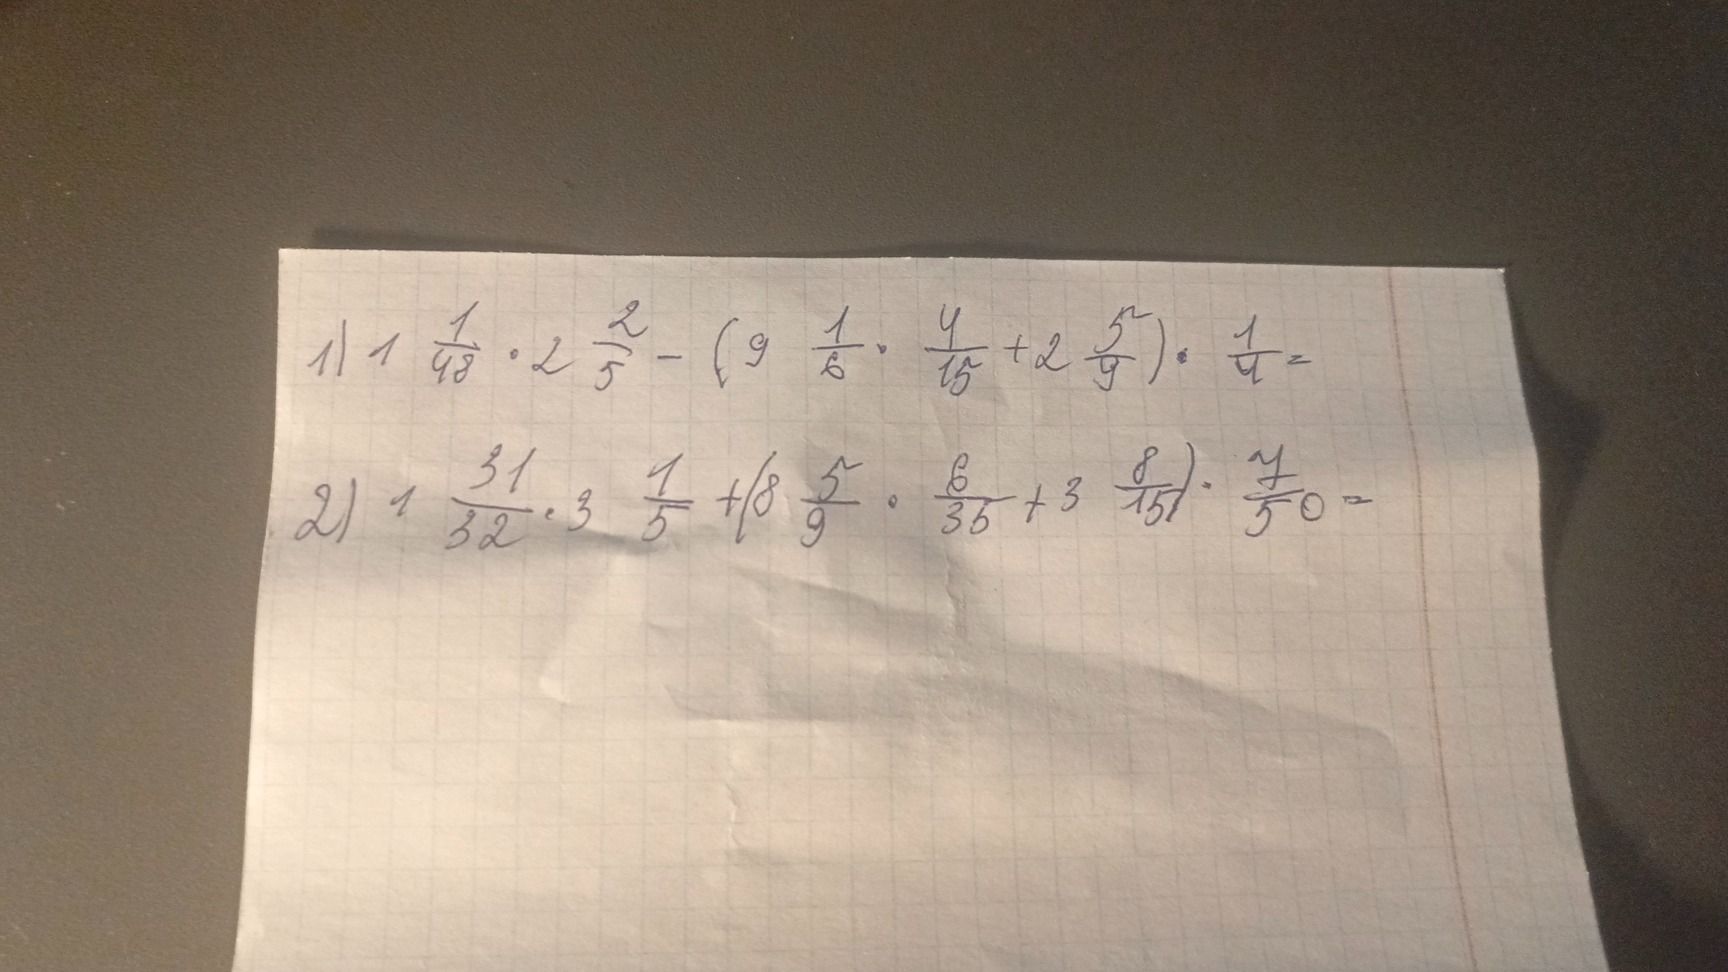 1) 1 1/48 · 2 2/5 − (9 1/6 · 4/15 + 2 5/9) · 1/4 =
2) 1 31/32 · 3 1/5 + (8 5/9 · 6/35 + 3 8/15) · 7/50 =